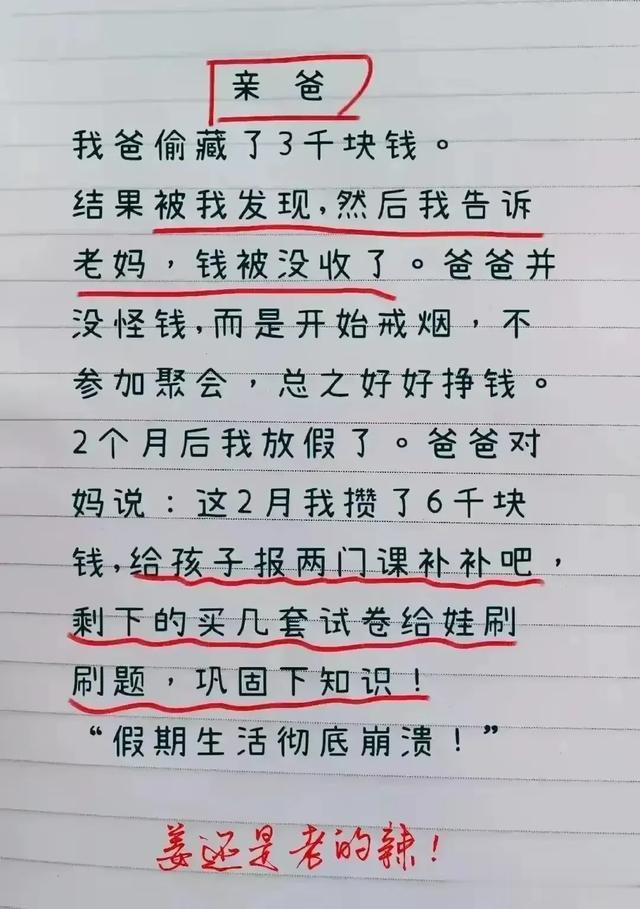 亲爸
我爸偷藏了3千块钱。
结果被我发现,然后我告诉
老妈，钱被没收了。爸爸并
没怪钱,而是开始戒烟，不
参加聚会，总之好好挣钱。
2个月后我放假了。爸爸对
妈说：这2月我攒了6千块
钱,给孩子报两门课补补吧，
剩下的买几套试卷给娃刷
刷题，巩固下知识！
“假期生活彻底崩溃！”
姜还是老的辣！